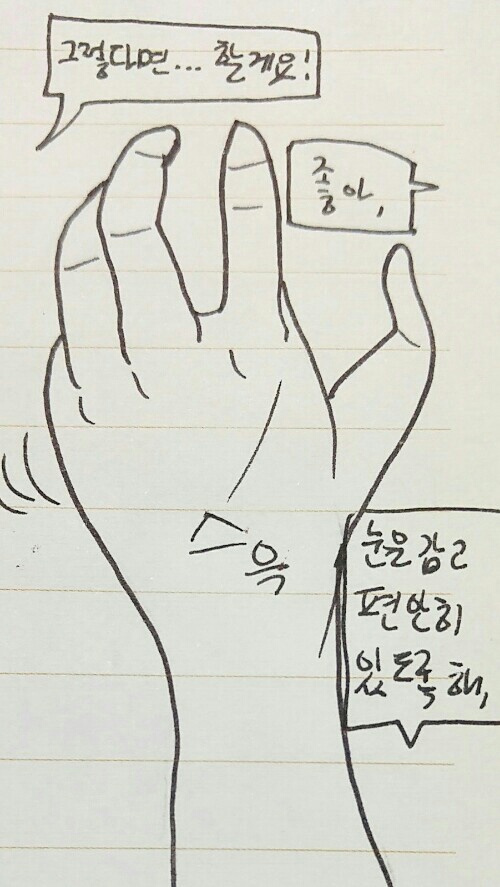 그렇다면... 할게요!
좋아,
스윽
눈을 감고
편안히
있도록 해,